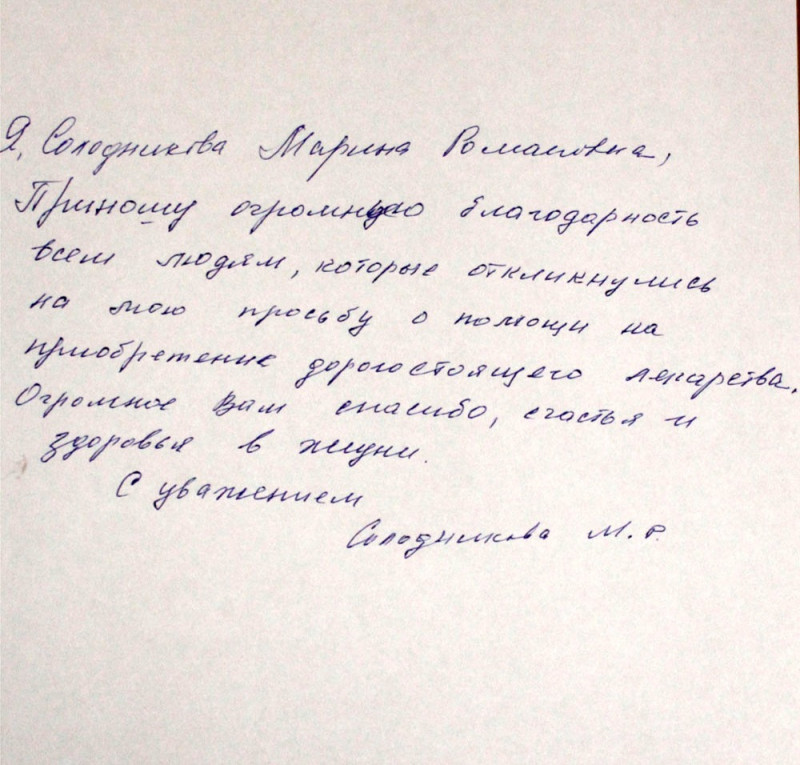 Я, Солодникова Марина Романовна,
Приношу огромную благодарность
всем людям, которые откликнулись
на мою просьбу о помощи на
приобретение дорогостоящего лекарства.
Огромное Вам спасибо, счастья и
здоровья в жизни.
С уважением
Солодникова М.Р.